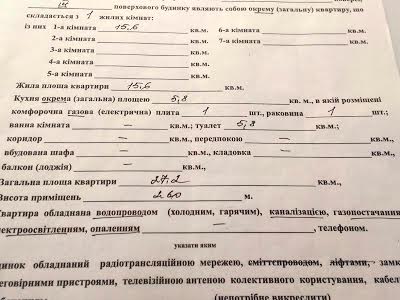 поверхового будинку являють собою окрему (загальну) квартиру, що
складається з 1 жилих кімнат:
із них 1-а кімната 15,6 кв.м. 6-а кімната кв.м.
2-а кімната кв.м. 7-а кімната кв.м.
3-а кімната кв.м.
4-а кімната кв.м.
5-а кімната кв.м.
Жила площа квартири 15,6 кв.м.
Кухня окрема (загальна) площею 5,8 кв. м., в якій розміщені
комфорочна газова (електрична) плита 1 шт., раковина 1 шт.;
ванна кімната — кв.м.; туалет 5,8 кв.м.;
коридор — кв.м., передпокою — кв.м.,
вбудована шафа — кв.м., кладовка — кв.м.,
балкон (лоджія) — кв.м.,
Загальна площа квартири 27.2 кв.м.,
Висота приміщень 260 м.
Квартира обладнана водопроводом (холодним, гарячим), каналізацією, газопостачання
електроосвітленням, опаленням — , телефоном.
указати яким
динок обладнаний радіотрансляційною мережею, сміттєпроводом, ліфтами, замк
еговірними пристроями, телевізійною антеною колективного користування, кабел
(непотрібне викреслити)